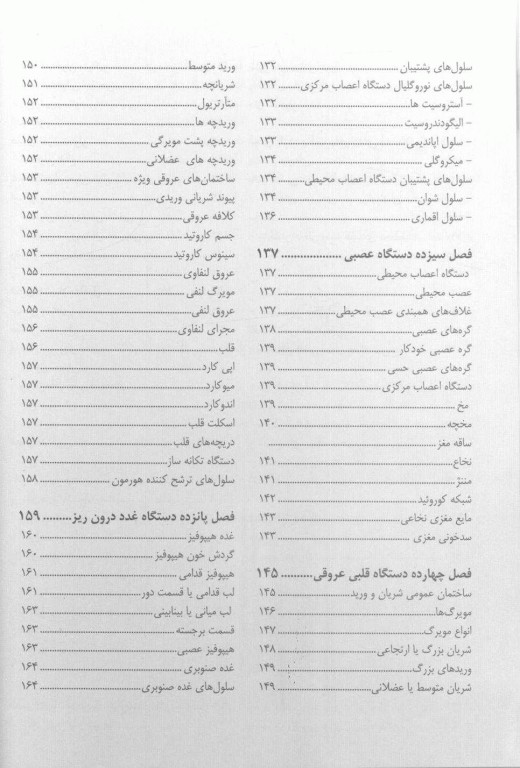 سلول‌های پشتیبان ........ ۱۳۲
سلول‌های نوروگلیال دستگاه اعصاب مرکزی ........ ۱۳۲
- آستروسیت ها ........ ۱۳۲
- الیگودندروسیت ........ ۱۳۳
- سلول اپاندیمی ........ ۱۳۳
- میکروگلی ........ ۱۳۴
سلول‌های پشتیبان دستگاه اعصاب محیطی ........ ۱۳۴
- سلول شوان ........ ۱۳۴
- سلول اقماری ........ ۱۳۶
فصل سیزده دستگاه عصبی ........ ۱۳۷
دستگاه اعصاب محیطی ........ ۱۳۷
عصب محیطی ........ ۱۳۷
غلاف‌های همبندی عصب محیطی ........ ۱۳۷
گره‌های عصبی ........ ۱۳۸
گره عصبی خودکار ........ ۱۳۹
گره‌های عصبی حسی ........ ۱۳۹
دستگاه اعصاب مرکزی ........ ۱۳۹
مخ ........ ۱۳۹
مخچه ........ ۱۴۰
ساقه مغز ........
نخاع ........ ۱۴۱
مننژ ........ ۱۴۱
شبکه کوروئید ........ ۱۴۲
مایع مغزی نخاعی ........ ۱۴۳
سدخونی مغزی ........ ۱۴۳
فصل چهارده دستگاه قلبی عروقی ........ ۱۴۵
ساختمان عمومی شریان و ورید ........ ۱۴۵
مویرگ‌ها ........ ۱۴۶
انواع مویرگ ........ ۱۴۷
شریان بزرگ یا ارتجاعی ........ ۱۴۸
وریدهای بزرگ ........ ۱۴۹
شریان متوسط یا عضلانی ........ ۱۴۹
ورید متوسط ........ ۱۵۰
شریانچه ........ ۱۵۱
متآرتریول ........ ۱۵۲
وریدچه ها ........ ۱۵۲
وریدچه پشت مویرگی ........ ۱۵۲
وریدچه های عضلانی ........ ۱۵۲
ساختمان‌های عروقی ویژه ........ ۱۵۳
پیوند شریانی وریدی ........ ۱۵۳
کلافه عروقی ........ ۱۵۳
جسم کاروتید ........ ۱۵۴
سینوس کاروتید ........ ۱۵۴
عروق لنفاوی ........ ۱۵۵
مویرگ لنفی ........ ۱۵۵
عروق لنفی ........ ۱۵۵
مجرای لنفاوی ........ ۱۵۶
قلب ........ ۱۵۶
اپی کارد ........ ۱۵۷
میوکارد ........ ۱۵۷
اندوکارد ........ ۱۵۷
اسکلت قلب ........ ۱۵۷
دریچه‌های قلب ........ ۱۵۷
دستگاه تکانه ساز ........ ۱۵۷
سلول‌های ترشح کننده هورمون ........ ۱۵۸
فصل پانزده دستگاه غدد درون ریز ........ ۱۵۹
غده هیپوفیز ........ ۱۶۰
گردش خون هیپوفیز ........ ۱۶۰
هیپوفیز قدامی ........ ۱۶۱
لب قدامی یا قسمت دور ........ ۱۶۱
لب میانی یا بینابینی ........ ۱۶۳
قسمت برجسته ........ ۱۶۳
هیپوفیز عصبی ........ ۱۶۳
غده صنوبری ........ ۱۶۴
سلول‌های غده صنوبری ........ ۱۶۴